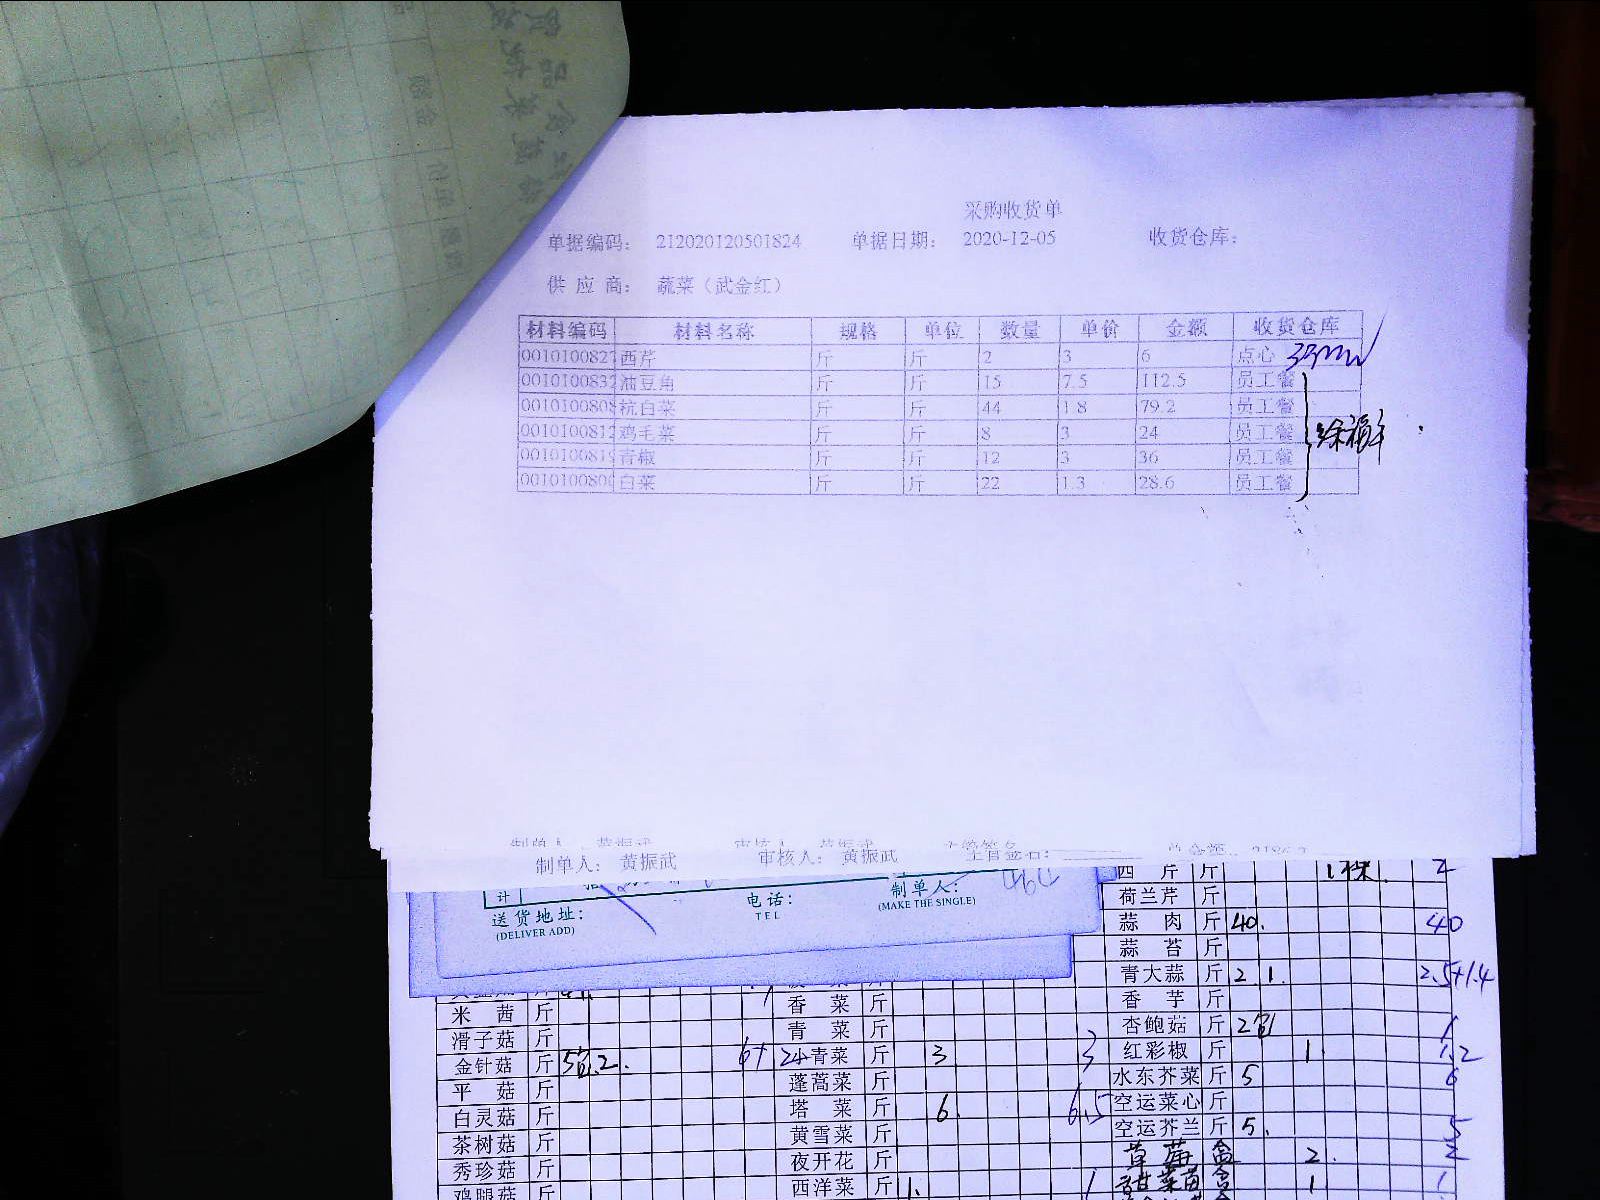 采购收货单
单据编码: 212020120501824 单据日期: 2020-12-05 收货仓库:
供 应 商: 蔬菜（武金红）
材料编码 材料名称 规格 单位 数量 单价 金额 收货仓库
0010100827 西芹 斤 斤 2 3 6 点心
0010100832 油豆角 斤 斤 15 7.5 112.5 员工餐
0010100808 杭白菜 斤 斤 44 1.8 79.2 员工餐
0010100812 鸡毛菜 斤 斤 8 3 24 员工餐
0010100819 青椒 斤 斤 12 3 36 员工餐
0010100800 白菜 斤 斤 22 1.3 28.6 员工餐
制单人: 黄振武 审核人: 黄振武 主管签名:
计
送货地址: 电话: 制单人:
(DELIVER ADD) TEL (MAKE THE SINGLE)
西 芹 斤 1棵. 2
荷兰芹 斤
蒜 肉 斤 40. 40
蒜 苔 斤
青大蒜 斤 2. 1. 2.5+1.4
香 菜 斤 香 芋 斤
米 茜 斤 青 菜 斤 杏鲍菇 斤 1
滑子菇 斤 红彩椒 斤 1 1.2
金针菇 斤 青菜 斤 3 3 水东芥菜 斤 5 6
平 菇 斤 蓬蒿菜 斤 空运菜心 斤
白灵菇 斤 塔 菜 斤 6. 6.5 空运芥兰 斤 5. 5
茶树菇 斤 黄雪菜 斤 草莓 盒 2. 2
秀珍菇 斤 夜开花 斤 甜菜苗 盒 1 1
鸡腿菇 斤 西洋菜 斤 1. 1